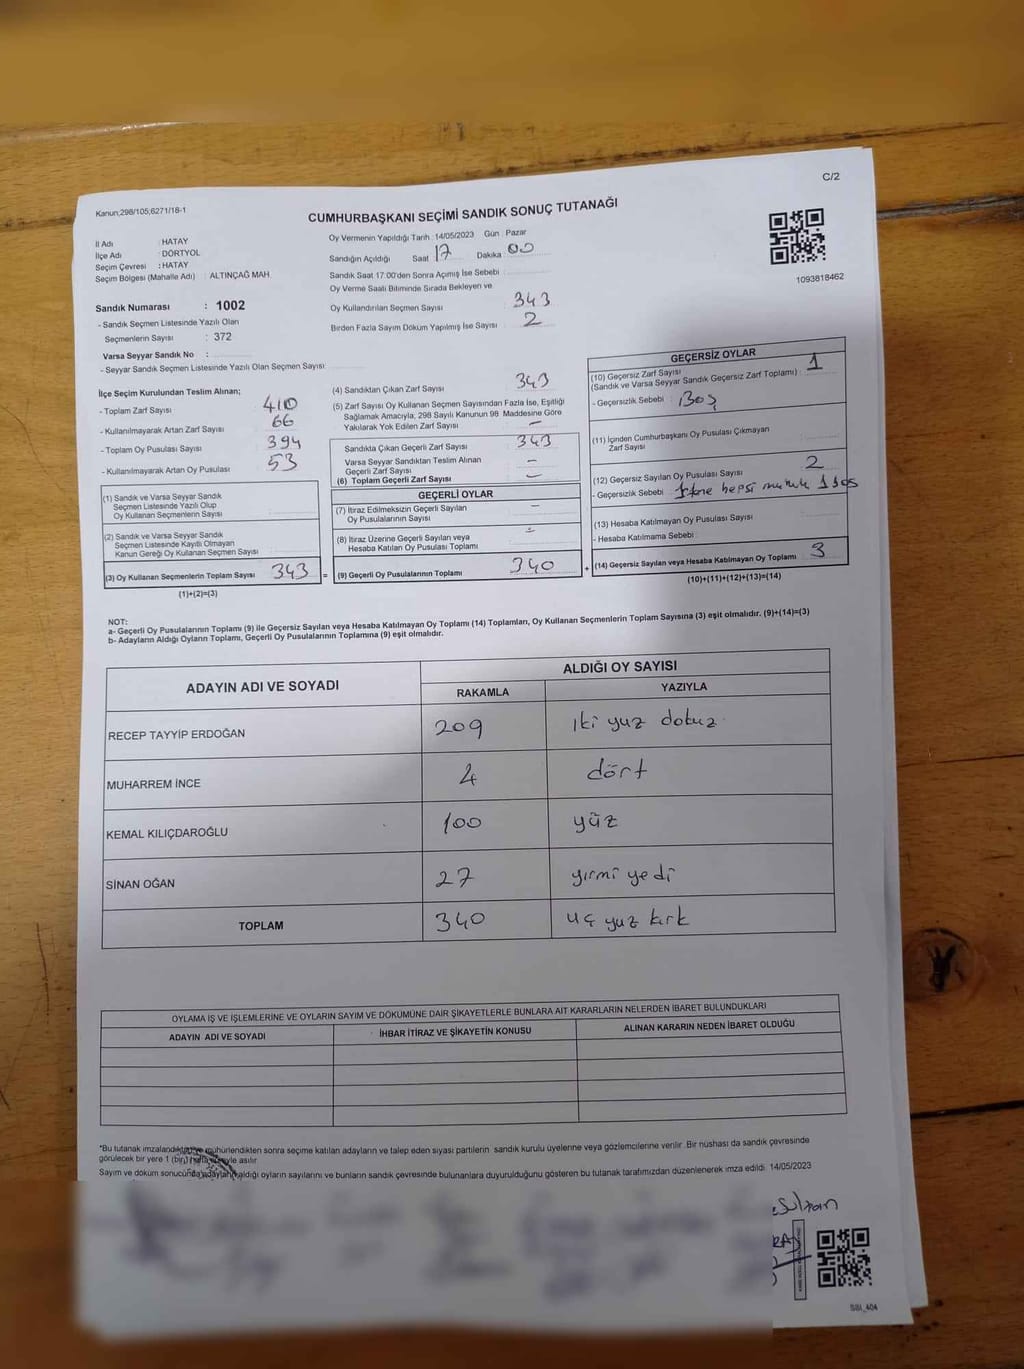 C/2
Kanun;298/105,6271/18-1
CUMHURBAŞKANI SEÇİMİ SANDIK SONUÇ TUTANAĞI
İl Adı : HATAY
İlçe Adı : DÖRTYOL
Seçim Çevresi : HATAY
Seçim Bölgesi (Mahalle Adı) : ALTINÇAĞ MAH.
Oy Vermenin Yapıldığı Tarih : 14/05/2023 Gün : Pazar
Sandığın Açıldığı Saat 17 Dakika 00
Sandık Saat 17:00'den Sonra Açımış İse Sebebi :
Oy Verme Saati Bitiminde Sırada Bekleyen ve
Oy Kullandırılan Seçmen Sayısı : 343
Birden Fazla Sayım Döküm Yapılmış İse Sayısı : 2
1093818462
Sandık Numarası : 1002
- Sandık Seçmen Listesinde Yazılı Olan
Seçmenlerin Sayısı : 372
Varsa Seyyar Sandık No :
- Seyyar Sandık Seçmen Listesinde Yazılı Olan Seçmen Sayısı:
İlçe Seçim Kurulundan Teslim Alınan;
- Toplam Zarf Sayısı 410
- Kullanılmayarak Artan Zarf Sayısı 66
- Toplam Oy Pusulası Sayısı 394
- Kullanılmayarak Artan Oy Pusulası 53
(1) Sandık ve Varsa Seyyar Sandık
Seçmen Listesinde Yazılı Olup
Oy Kullanan Seçmenlerin Sayısı
(2) Sandık ve Varsa Seyyar Sandık
Seçmen Listesinde Kayıtlı Olmayan
Kanun Gereği Oy Kullanan Seçmen Sayısı
(3) Oy Kullanan Seçmenlerin Toplam Sayısı 343 =
(1)+(2)=(3)
(4) Sandıktan Çıkan Zarf Sayısı 343
(5) Zarf Sayısı Oy Kullanan Seçmen Sayısından Fazla İse, Eşitliği
Sağlamak Amacıyla, 298 Sayılı Kanunun 98. Maddesine Göre
Yakılarak Yok Edilen Zarf Sayısı –
Sandıkta Çıkan Geçerli Zarf Sayısı 343
Varsa Seyyar Sandıktan Teslim Alınan
Geçerli Zarf Sayısı –
(6) Toplam Geçerli Zarf Sayısı –
GEÇERLİ OYLAR
(7) İtiraz Edilmeksizin Geçerli Sayılan
Oy Pusulalarının Sayısı –
(8) İtiraz Üzerine Geçerli Sayılan veya
Hesaba Katılan Oy Pusulası Toplamı
(9) Geçerli Oy Pusulalarının Toplamı 340 +
GEÇERSİZ OYLAR
(10) Geçersiz Zarf Sayısı
(Sandık ve Varsa Seyyar Sandık Geçersiz Zarf Toplamı) : 1
- Geçersizlik Sebebi : Boş
(11) İçinden Cumhurbaşkanı Oy Pusulası Çıkmayan
Zarf Sayısı
(12) Geçersiz Sayılan Oy Pusulası Sayısı 2
- Geçersizlik Sebebi hepsi
(13) Hesaba Katılmayan Oy Pusulası Sayısı
- Hesaba Katılmama Sebebi :
(14) Geçersiz Sayılan veya Hesaba Katılmayan Oy Toplamı 3
(10)+(11)+(12)+(13)=(14)
NOT:
a- Geçerli Oy Pusulalarının Toplamı (9) ile Geçersiz Sayılan veya Hesaba Katılmayan Oy Toplamı (14) Toplamları, Oy Kullanan Seçmenlerin Toplam Sayısına (3) eşit olmalıdır. (9)+(14)=(3)
b- Adayların Aldığı Oyların Toplamı, Geçerli Oy Pusulalarının Toplamına (9) eşit olmalıdır.
ADAYIN ADI VE SOYADI ALDIĞI OY SAYISI
RAKAMLA YAZIYLA
RECEP TAYYİP ERDOĞAN 209 iki yuz dokuz
MUHARREM İNCE 4 dört
KEMAL KILIÇDAROĞLU 100 yüz
SİNAN OĞAN 27 yirmi yedi
TOPLAM 340 uç yuz kırk
OYLAMA İŞ VE İŞLEMLERİNE VE OYLARIN SAYIM VE DÖKÜMÜNE DAİR ŞİKAYETLERLE BUNLARA AİT KARARLARIN NELERDEN İBARET BULUNDUKLARI
ADAYIN ADI VE SOYADI İHBAR İTİRAZ VE ŞİKAYETİN KONUSU ALINAN KARARIN NEDEN İBARET OLDUĞU
*Bu tutanak imzalandıktan ve mühürlendikten sonra seçime katılan adayların ve talep eden siyasi partilerin sandık kurulu üyelerine veya gözlemcilerine verilir. Bir nüshası da sandık çevresinde
görülecek bir yere 1 (bir) hafta süreyle asılır.
Sayım ve döküm sonucunda adayların aldığı oyların sayılarını ve bunların sandık çevresinde bulunanlara duyurulduğunu gösteren bu tutanak tarafımızdan düzenlenerek imza edildi. 14/05/2023
Sultan
SSI_404